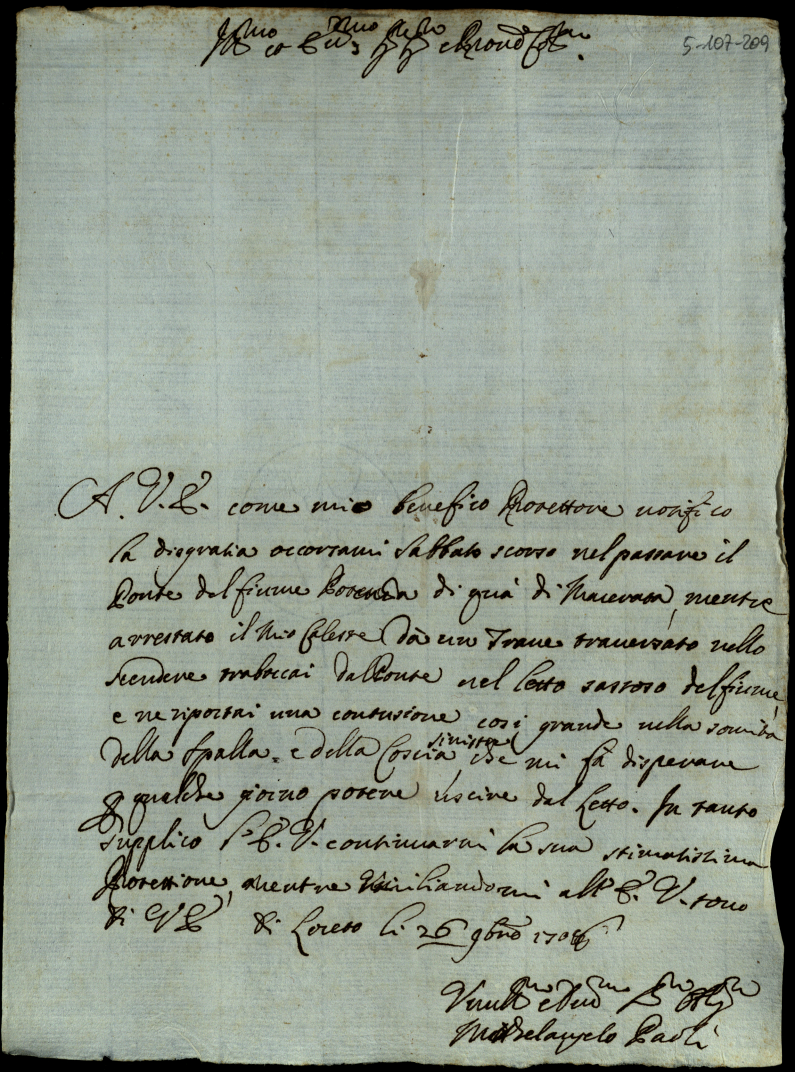 Ill.mo et Ecc.mo Sig.r Sig.r e Pron Col.mo
5-107-209
A. V. E. come mio benefico Protettore notifico
la disgratia occorsami Sabbato scorso nel passare il
Ponte del fiume Potenza di quà di Macerata, mentre
arrestato il mio Calesse dà un Trave traversato nello
scendere traboccai dal Ponte nel letto sassoso del fiume,
e ne riportai una contusione così grande nella somità
della Spalla, e della Coscia sinistra, che mi fà disperare
p qualche giorno potere uscire dal Letto. In tanto
supplico l'E. V. continuarmi la sua stimatissima
Protettione, mentre umiliandomi all'E. V. sono
di V E di Loreto li 26 9bre 1706
Vmil.mo e Deu.mo Ser.re
Michelangelo Paoli